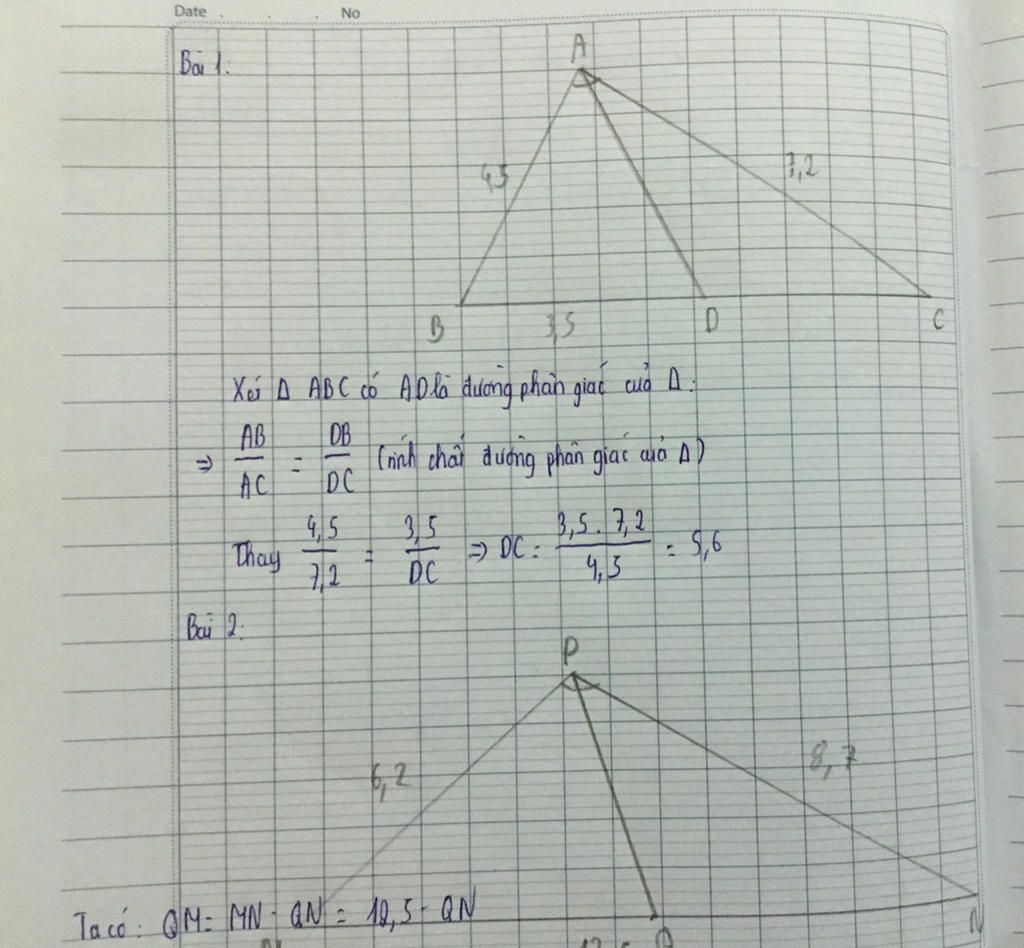 Date . . . . No
Bài 1:
A
4,5
7,2
B
3,5
D
C
Xét Δ ABC có AD là đường phân giác của Δ:
⇒ AB/AC = DB/DC (tính chất đường phân giác của Δ)
Thay 4,5/7,2 = 3,5/DC ⇒ DC = 3,5 . 7,2/4,5 = 5,6
Bài 2:
P
6,2
8,7
Ta có: QM = MN - QN = 12,5 - QN
N
Q